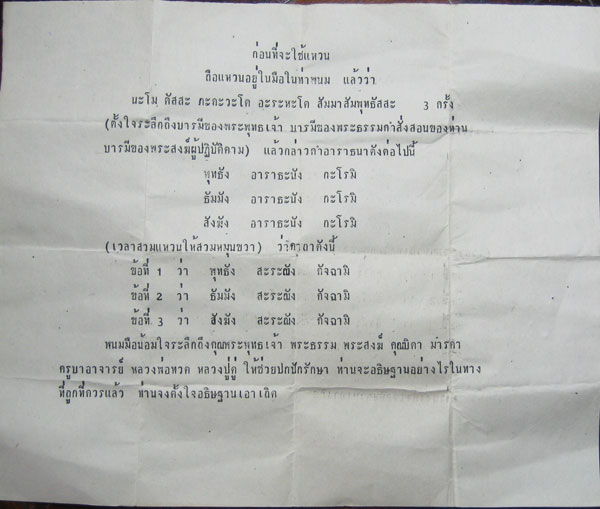 ก่อนที่จะใช้แหวน
ถือแหวนอยู่ในมือในท่าพนม แล้วว่า
นะโม ตัสสะ ภะคะวะโต อะระหะโต สัมมาสัมพุทธัสสะ 3 ครั้ง
(ตั้งใจระลึกถึงบารมีของพระพุทธเจ้า บารมีของพระธรรมคำสั่งสอนของท่าน
บารมีของพระสงฆ์ผู้ปฏิบัติตาม) แล้วกล่าวคำอาราธนาดังต่อไปนี้
พุทธัง อาราธะนัง กะโรมิ
ธัมมัง อาราธะนัง กะโรมิ
สังฆัง อาราธะนัง กะโรมิ
(เวลาสวมแหวนให้สวมหมุนขวา) ว่าคาถาดังนี้
ข้อที่ 1 ว่า พุทธัง สะระณัง คัจฉามิ
ข้อที่ 2 ว่า ธัมมัง สะระณัง คัจฉามิ
ข้อที่ 3 ว่า สังฆัง สะระณัง คัจฉามิ
พนมมือน้อมใจระลึกถึงคุณพระพุทธเจ้า พระธรรม พระสงฆ์ คุณบิดา มารดา
ครูบาอาจารย์ หลวงพ่อทวด หลวงปู่ดู่ ให้ช่วยปกปักรักษา ท่านจะอธิษฐานอย่างไรในทาง
ที่ถูกที่ควรแล้ว ท่านจงตั้งใจอธิษฐานเอาเถิด